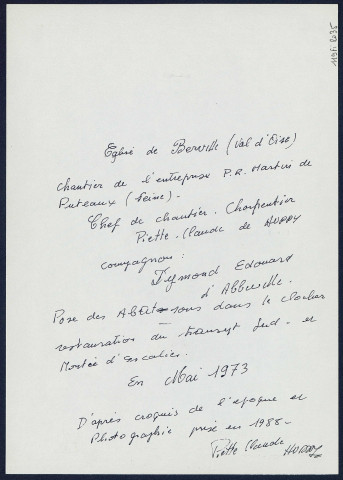 119Fi 2035
Eglise de Berville (Val d'Oise)
Chantier de l'entreprise P.R. Martin de
Puteaux (Seine)-
Chef de chantier. Charpentier
Piette. Claude de
compagnon:
Edouard
d'Abbeville.
Pose des Abat-sons dans le clocher
restauration du transept Sud - et
Montée d'escalier.
En Mai 1973
D'après croquis de l'époque et
Photographie prise en 1988-
Piette Claude